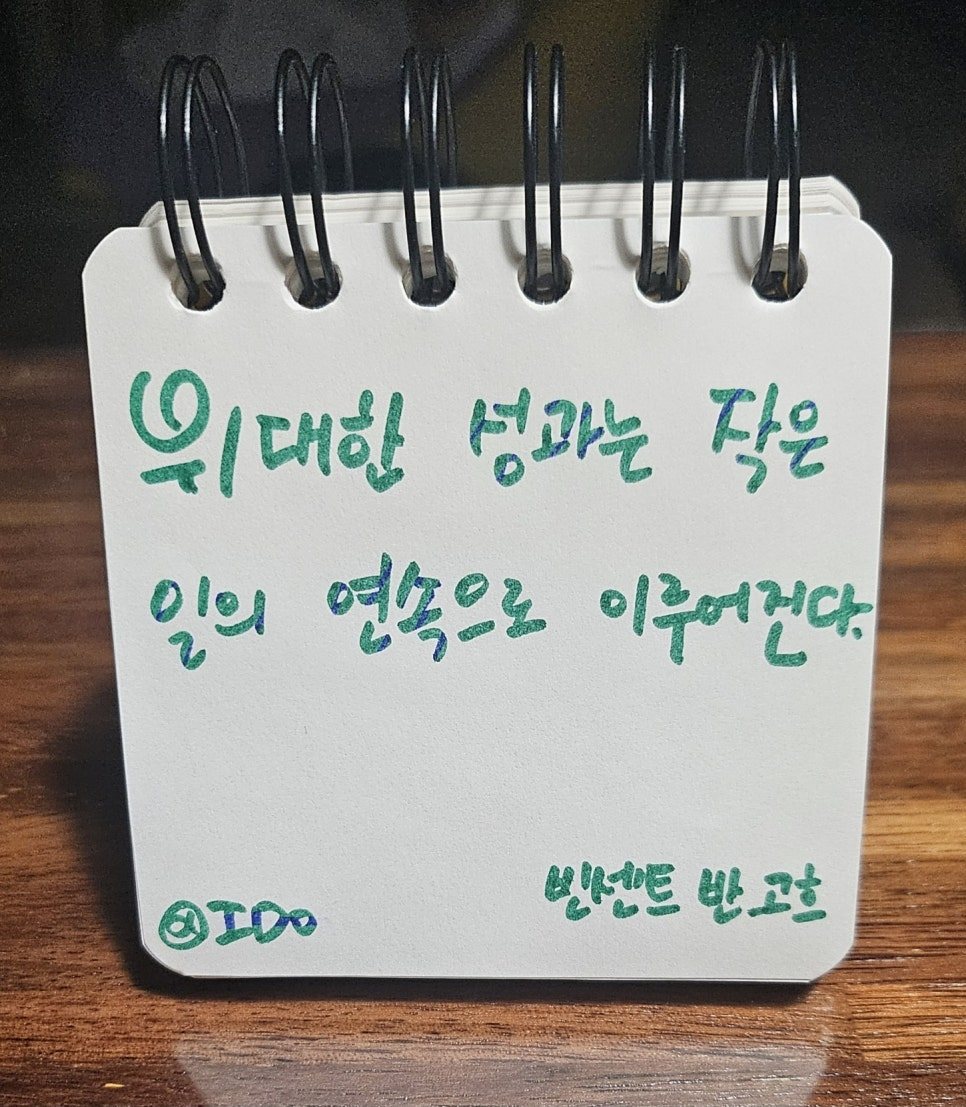 위대한 성과는 작은
일의 연속으로 이루어진다.
빈센트 반 고흐
@IDo